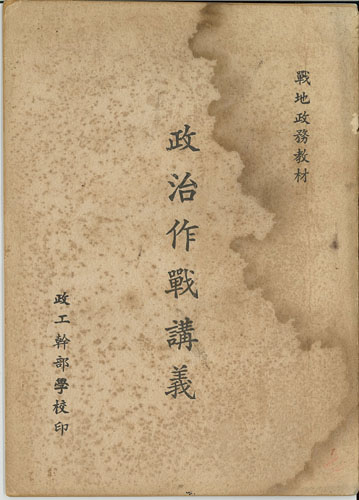 戰地政務教材
政治作戰講義
政工幹部學校印